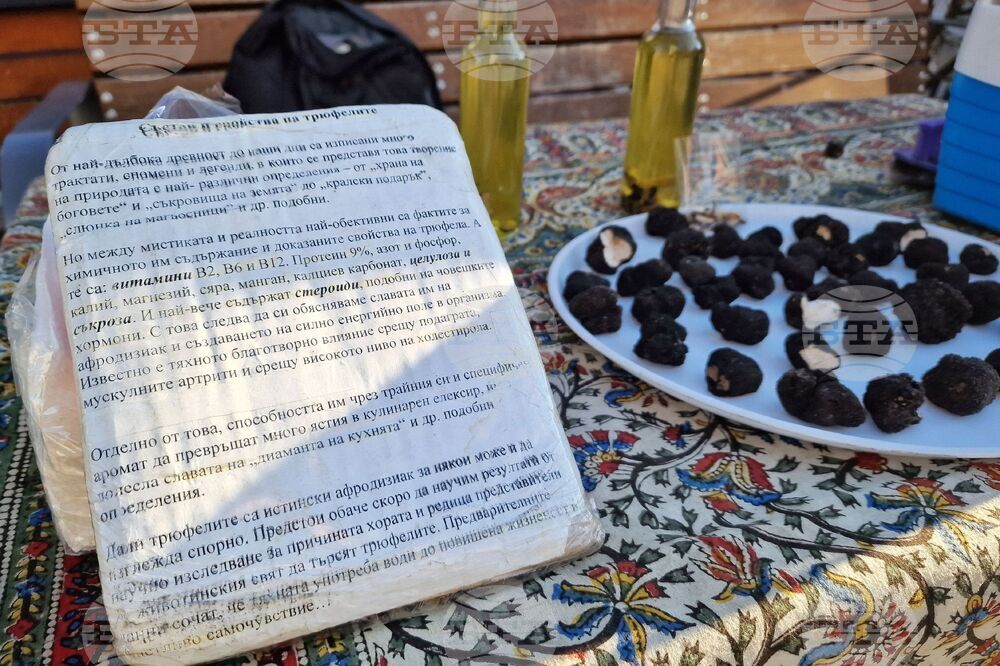 Състав и свойства на трюфелите
От най-дълбока древност до наши дни са изписани много
трактати, спомени и легенди, в които се представя това творение
на природата с най- различни определения – от „храна на
боговете“ и „съкровища на земята“ до „кралски подарък“,
„слюнка на магьосници“ и др. подобни.
Но между мистиката и реалността най-обективни са фактите за
химичното им съдържание и доказаните свойства на трюфела. А
те са: витамини В2, В6 и В12. Протеин 9%, азот и фосфор,
калий, магнезий, сяра, манган, калциев карбонат, целулоза и
съкроза. И най-вече съдържат стероиди, подобни на човешките
хормони. С това следва да си обясняваме славата им на
афродизиак и създаването на силно енергийно поле в организма.
Известно е тяхното благотворно влияние срещу подагра,
мускулните артрити и срещу високото ниво на холестерола.
Отделно от това, способността им чрез трайния си и специфичен
аромат да превръщат много ястия в кулинарен елексир, и
донесла славата на „диаманта на кухнята“ и др. подобни
определения.
Дали трюфелите са истински афродизиак за някои може и да
изглежда спорно. Предстои обаче скоро да научим резултати от
научно изследване за причината хората и редица представители
животинския свят да търсят трюфелите. Предварителните
данни сочат, че тяхната употреба води до повишена жизненост и
самочувствие…
БТА
БТА
БТА
БТА
БТА